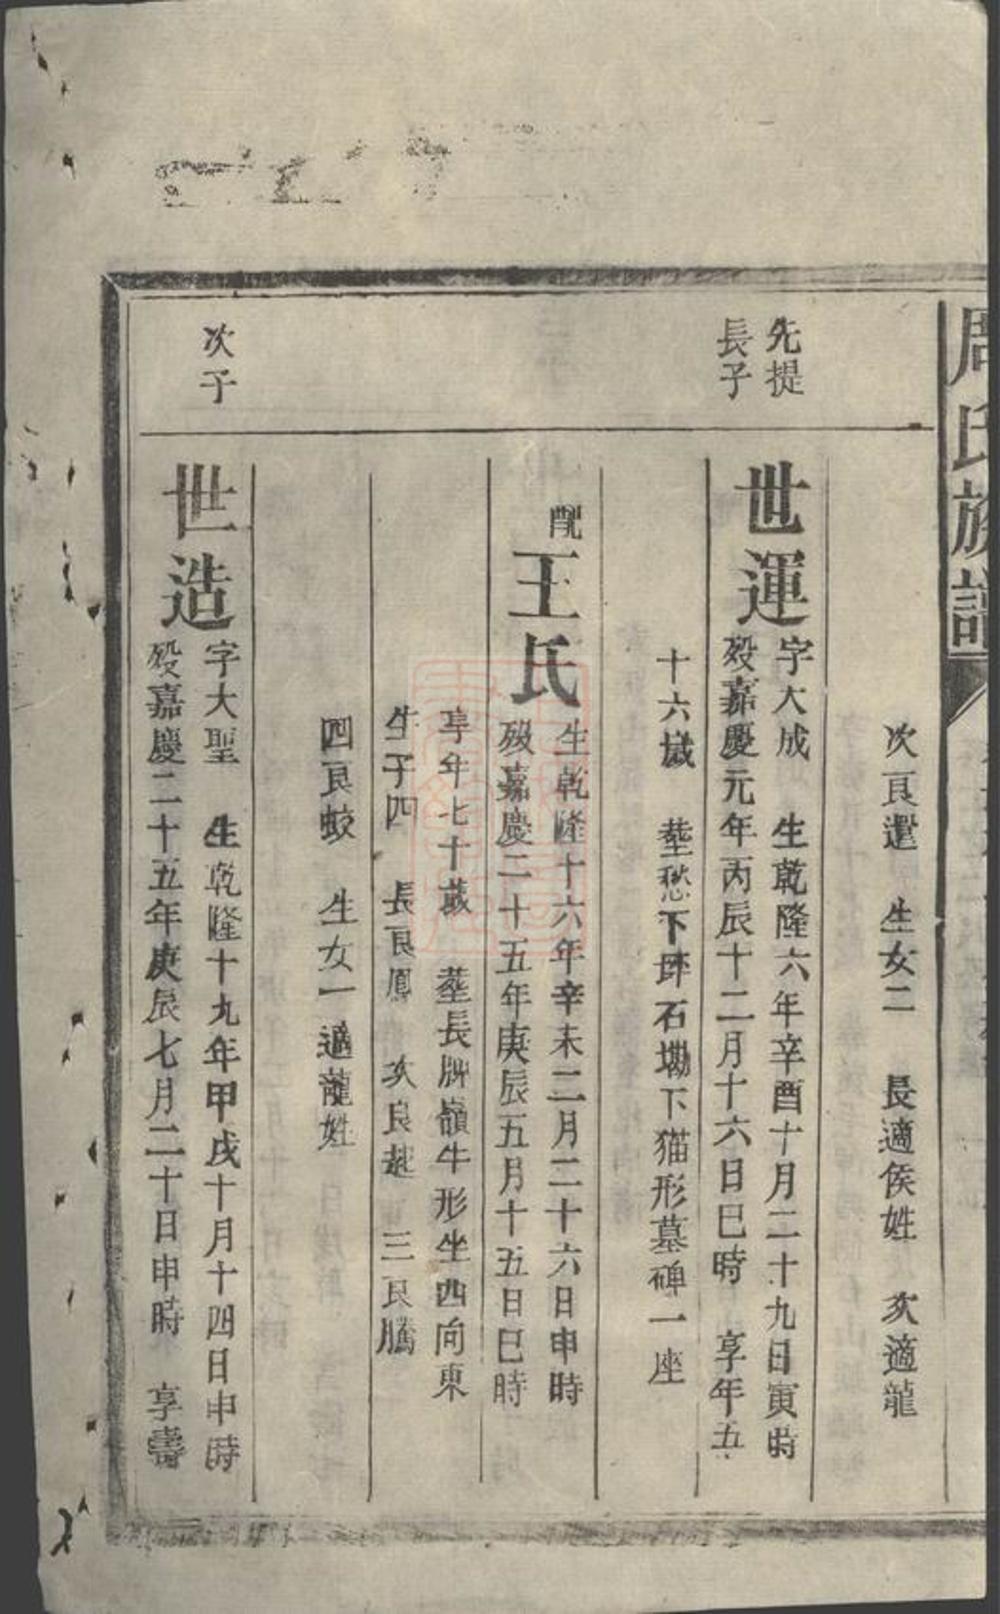 周氏族譜
次良還 生女二 長適侯姓 次適龍
先提
長子
世運
字大成 生乾隆六年辛酉十月二十九日寅時
歿嘉慶元年丙辰十二月十六日巳時 享年五
十六歲 塟愁下坪石塝下猫形墓碑一座
配王氏
生乾隆十六年辛未二月二十六日申時
歿嘉慶二十五年庚辰五月十五日巳時
享年七十歲 塟長牌嶺牛形坐西向東
生子四 長良鳳 次良超 三良騰
四良蛟 生女一適龍姓
次子
世造
字大聖 生乾隆十九年甲戌十月十四日申時
歿嘉慶二十五年庚辰七月二十日申時 享壽